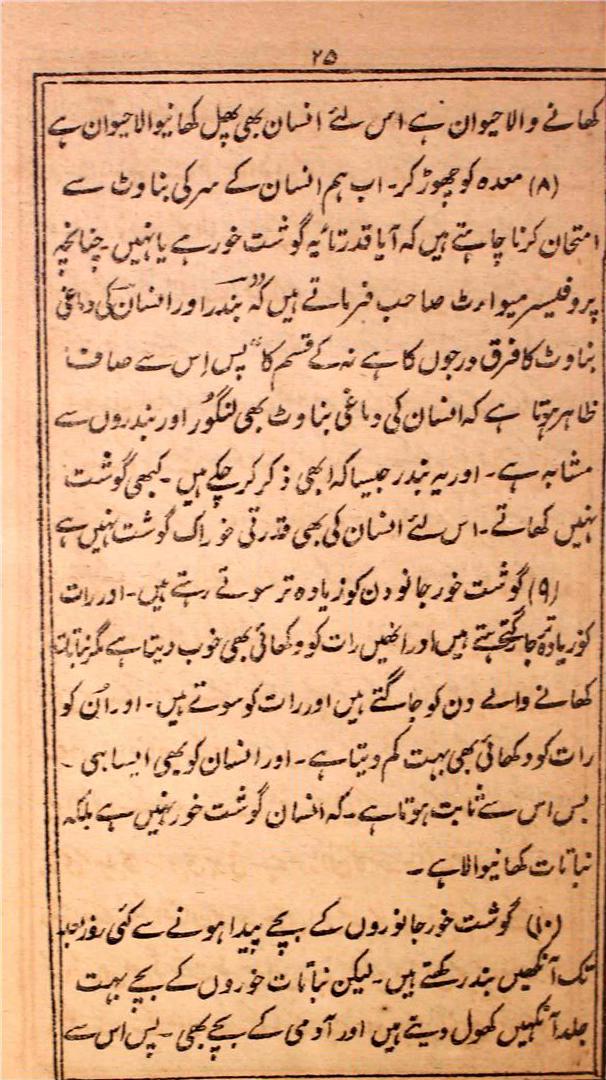 ۲۵
کھانے والا حیوان ہے اس لئے انسان بھی پھل کھانیوالا حیوان ہے
(۸) معدہ کو چھوڑ کر۔ اب ہم انسان کے سر کی بناوٹ سے
امتحان کرنا چاہتے ہیں کہ آیا قدرتاً یہ گوشت خور ہے یا نہیں۔ چنانچہ
پروفیسر میوارٹ صاحب فرماتے ہیں کہ "بندر اور انسان کی دماغی
بناوٹ کا فرق درجوں کا ہے نہ کے قسم کا" پس اِس سے صاف
ظاہر ہوتا ہے کہ انسان کی دماغی بناوٹ بھی لنگور اور بندروں سے
مشابہ ہے۔ اور یہ بندر جیسا کہ ابھی ذکر کر چکے ہیں۔ کبھی گوشت
نہیں کھاتے۔ اس لئے انسان کی بھی قدرتی خوراک گوشت نہیں ہے
(۹) گوشت خور جانور دن کو زیادہ تر سوتے رہتے ہیں۔ اور رات
کو زیادہ تر جاگتے رہتے ہیں اور انھیں رات کو دکھائی بھی خوب دیتا ہے مگر نباتات
کھانے والے دن کو جاگتے ہیں اور رات کو سوتے ہیں۔ اور اُن کو
رات کو دکھائی بھی بہت کم دیتا ہے۔ اور انسان کو بھی ایسا ہی ۔
بس اس سے ثابت ہوتا ہے۔ کہ انسان گوشت خور نہیں ہے بلکہ
نباتات کھانیوالا ہے۔
(۱۰) گوشت خور جانوروں کے بچے پیدا ہونے سے کئی روز بعد
تک آنکھیں بند رکھتے ہیں۔ لیکن نباتات خوروں کے بچے بہت
جلد آنکھیں کھول دیتے ہیں اور آدمی کے بچے بھی۔ پس اس سے